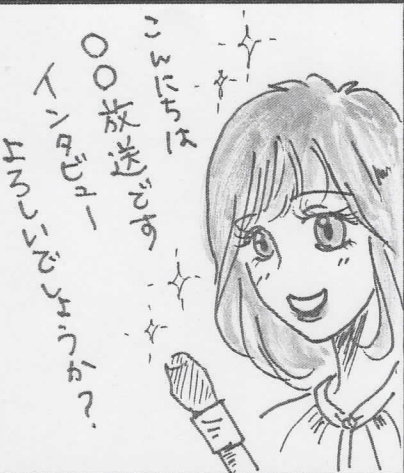 こんにちは
〇〇放送です
インタビュー
よろしいでしょうか?